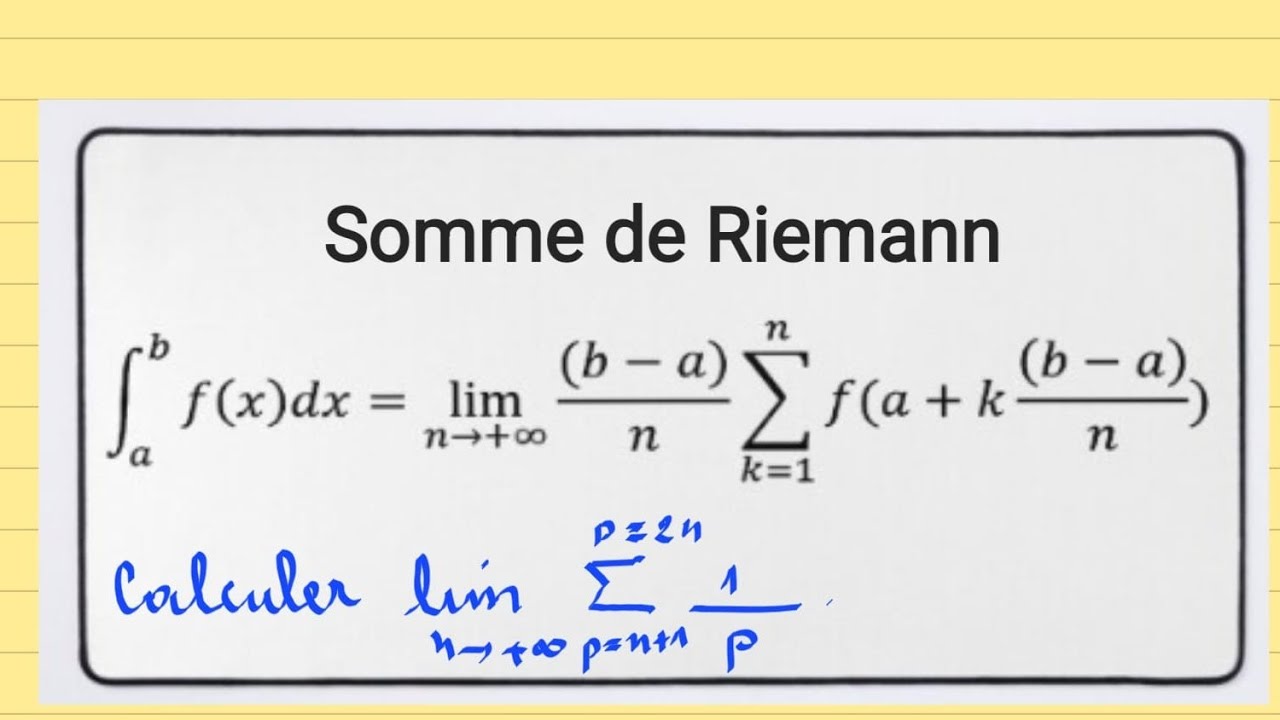 Somme de Riemann
∫_a^b f(x)dx = lim_{n→+∞} (b − a)/n ∑_{k=1}^{n} f(a + k (b − a)/n)
Calculer lim_{n→+∞} ∑_{p=n+1}^{p=2n} 1/p .